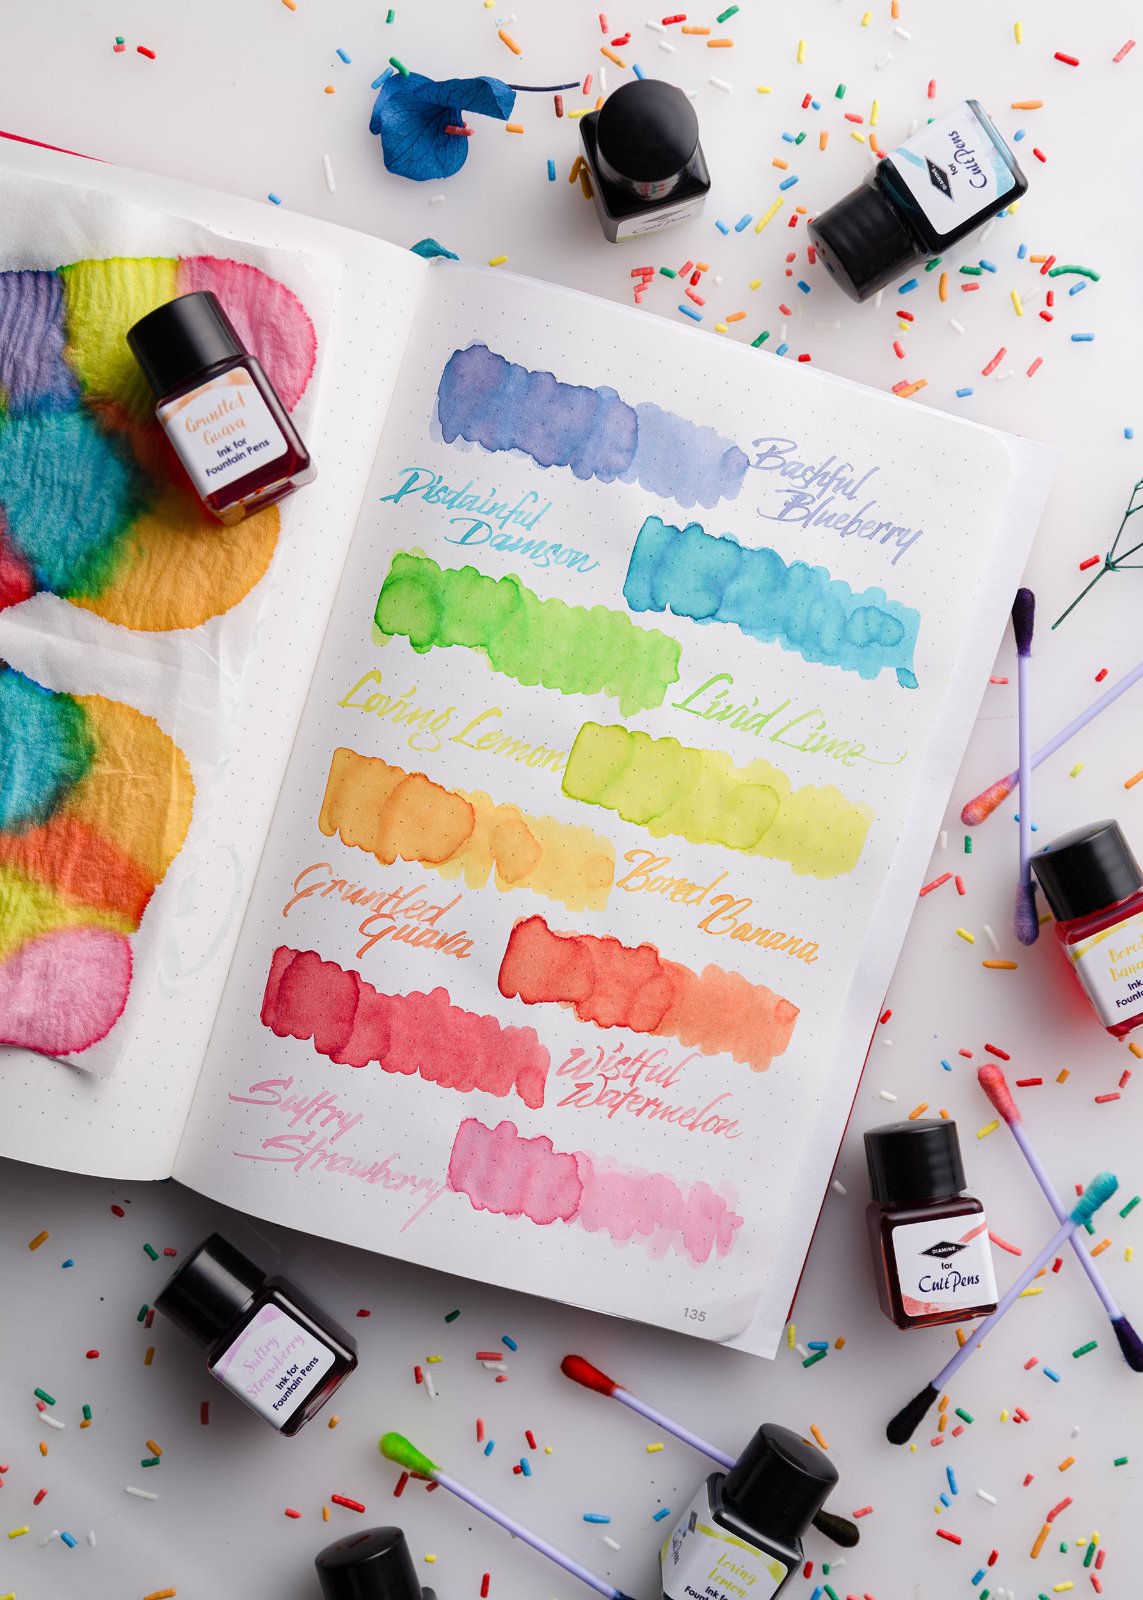 Cult Pens
DIAMINE
for
Cult Pens
Gruntled
Guava
Ink for
Fountain Pens
Bashful
Blueberry
Disdainful
Damson
Livid Lime
Loving Lemon
Bored
Banana
Gruntled
Guava
Wistful
Watermelon
Sultry
Strawberry
135
Bored
Ink
DIAMINE
for
Cult Pens
Sultry
Strawberry
Ink for
Fountain Pens
Loving
Lemon
Ink for